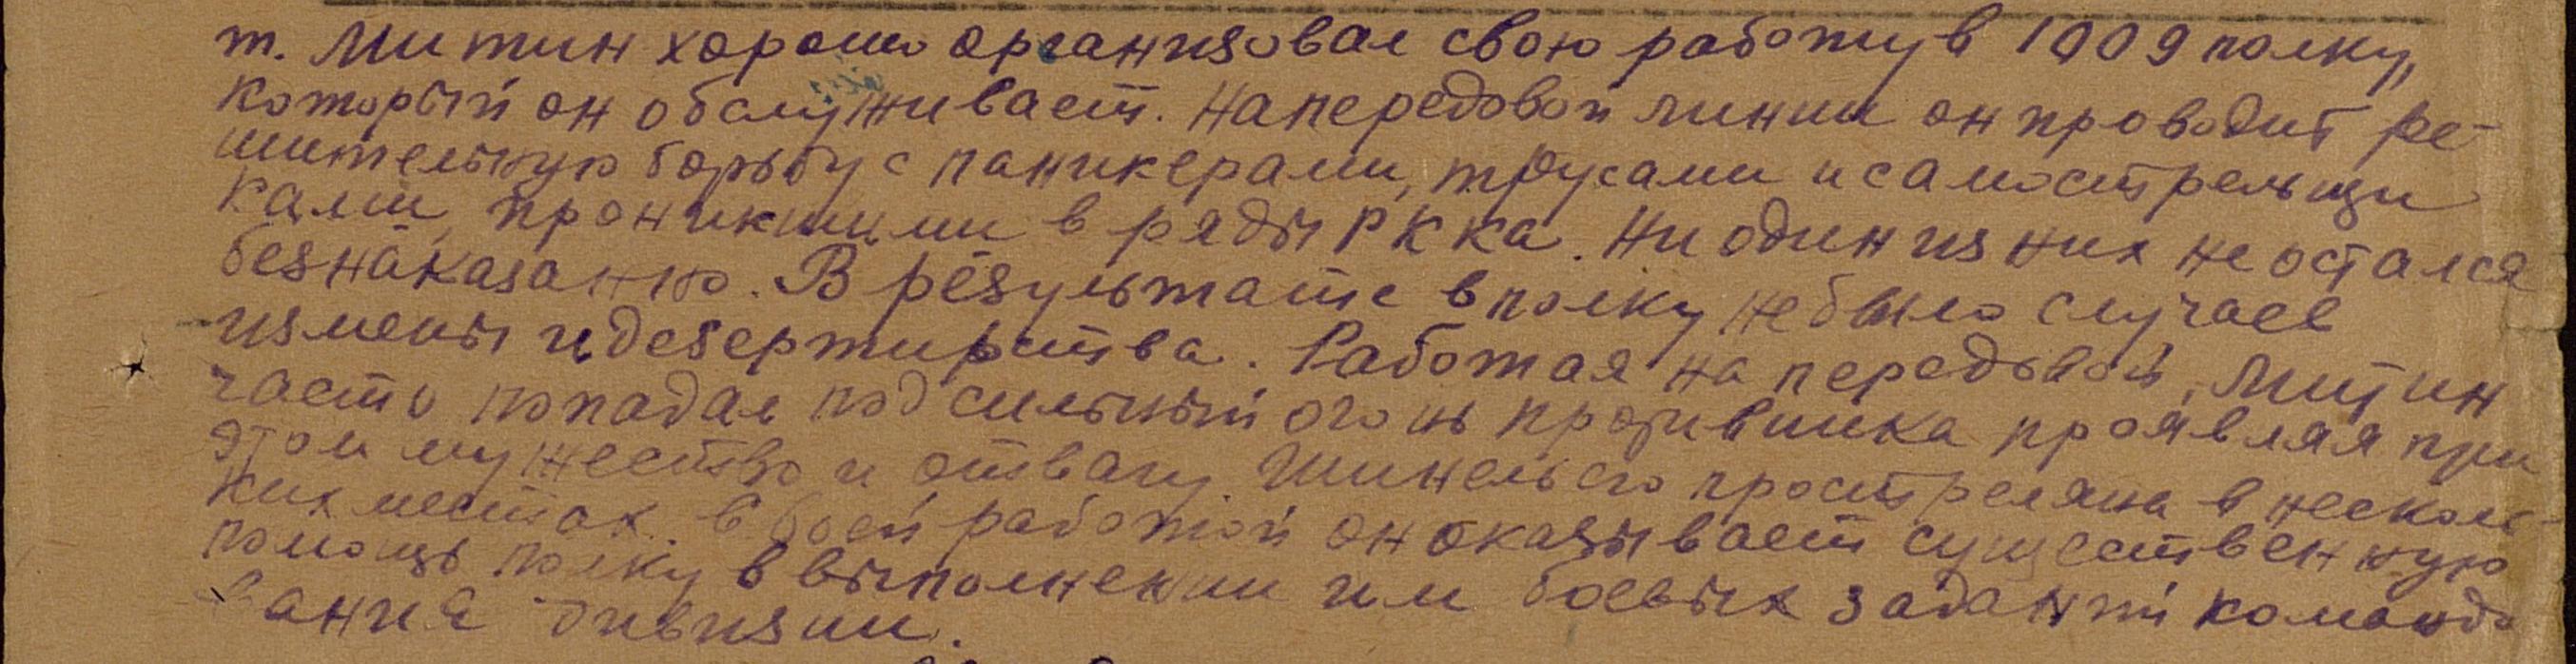 т. Митин хорошо организовал свою работу в 1009 полку,
который он обслуживает. На передовой линии он проводит ре-
шительную борьбу с паникерами, трусами и самострельщи
ками, проникшими в ряды РККА. Ни один из них не остался
безнаказанно. В результате в полку не было случаев
измены и дезертирства. Работая на передовой, Митин
часто попадал под сильный огонь противника проявляя при
этом мужество и отвагу. Шинель его прострелена в несколь-
ких местах. Своей работой он оказывает существенную
помощь полку в выполнении им боевых заданий командо
вания дивизии.